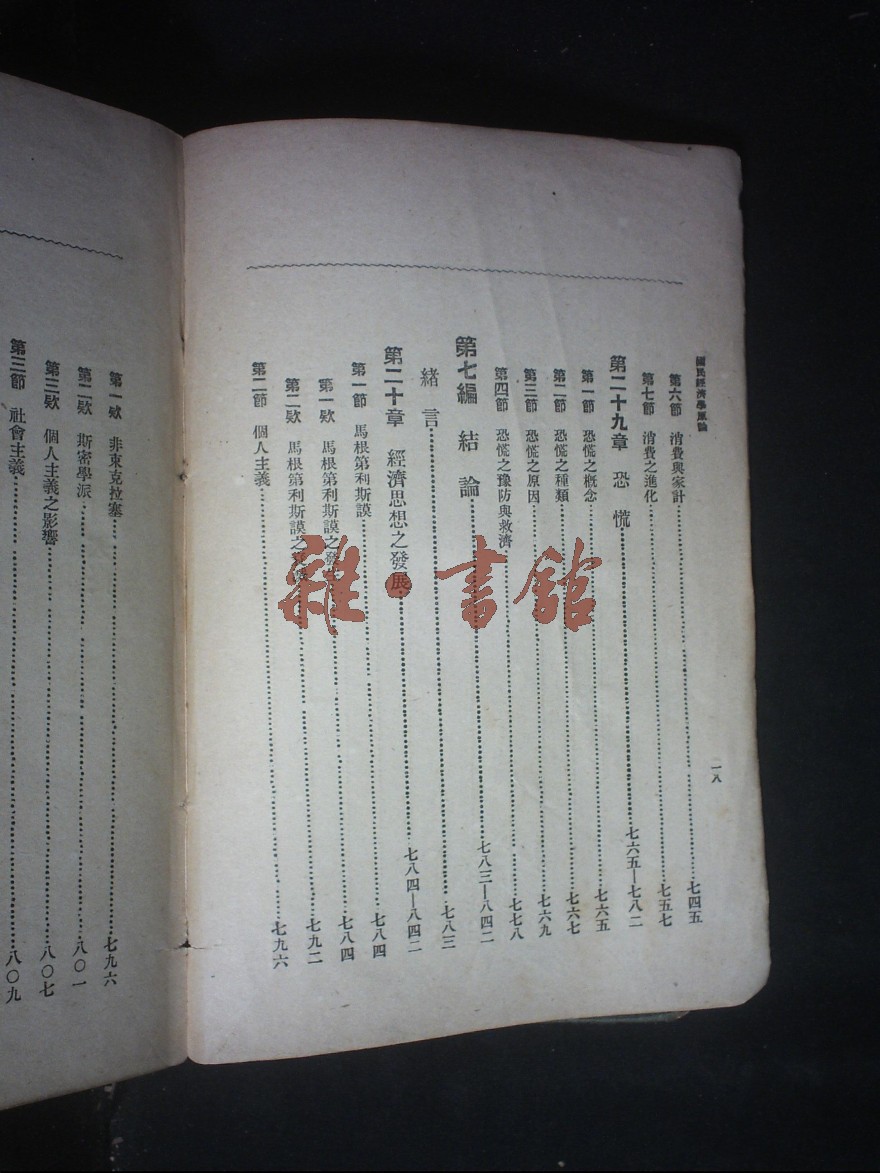 國民經濟學原論
二八
第六節 消費與家計 七四五
第七節 消費之進化 七五七
第二十九章 恐慌 七六五—七八二
第一節 恐慌之概念 七六五
第二節 恐慌之種類 七六七
第三節 恐慌之原因 七六九
第四節 恐慌之豫防與救濟 七七八
第七編 結論 七八三—八四二
緒言 七八三
第二十章 經濟思想之發展 七八四—八四二
第一節 馬根第利斯謨 七八四
第一欵 馬根第利斯謨之發 七八四
第二欵 馬根第利斯謨之 七九二
第二節 個人主義 七九六
第一欵 非東克拉塞 七九六
第二欵 斯密學派 八〇一
第三欵 個人主義之影響 八〇七
第三節 社會主義 八〇九
雜·書館